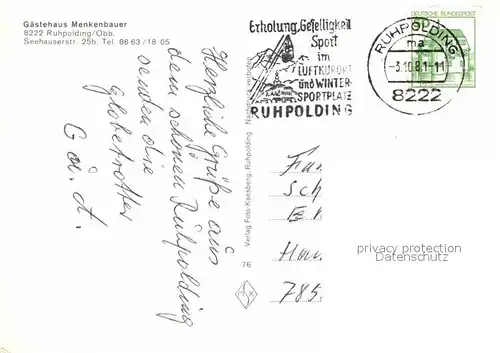 Gästehaus Menkenbauer
8222 Ruhpolding/Obb.
Seehauserstr. 25b, Tel. 8663/1805
Erholung, Geselligkeit
Sport
im
LUFTKURORT
und WINTER-
SPORTPLATZ
RUHPOLDING
RUHPOLDING
ma
-3.10.81-11
8222
DEUTSCHE BUNDESPOST
Herzliche Grüße aus
dem schönen Ruhpolding
senden die
Globetrotter
G. u. L.
Verlag Foto Kaesberg, Ruhpolding. Nachdruck verboten
76
Fam
Sch
Han
785
privacy protection
Datenschutz